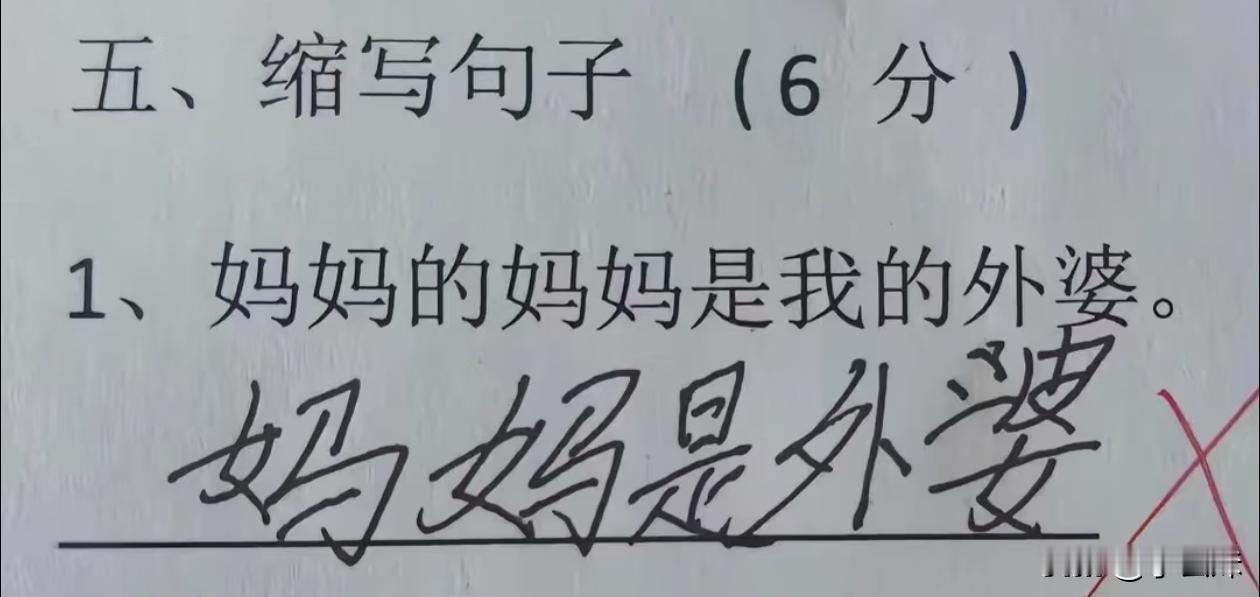 五、缩写句子 (6 分)
1、妈妈的妈妈是我的外婆。
妈妈是外婆